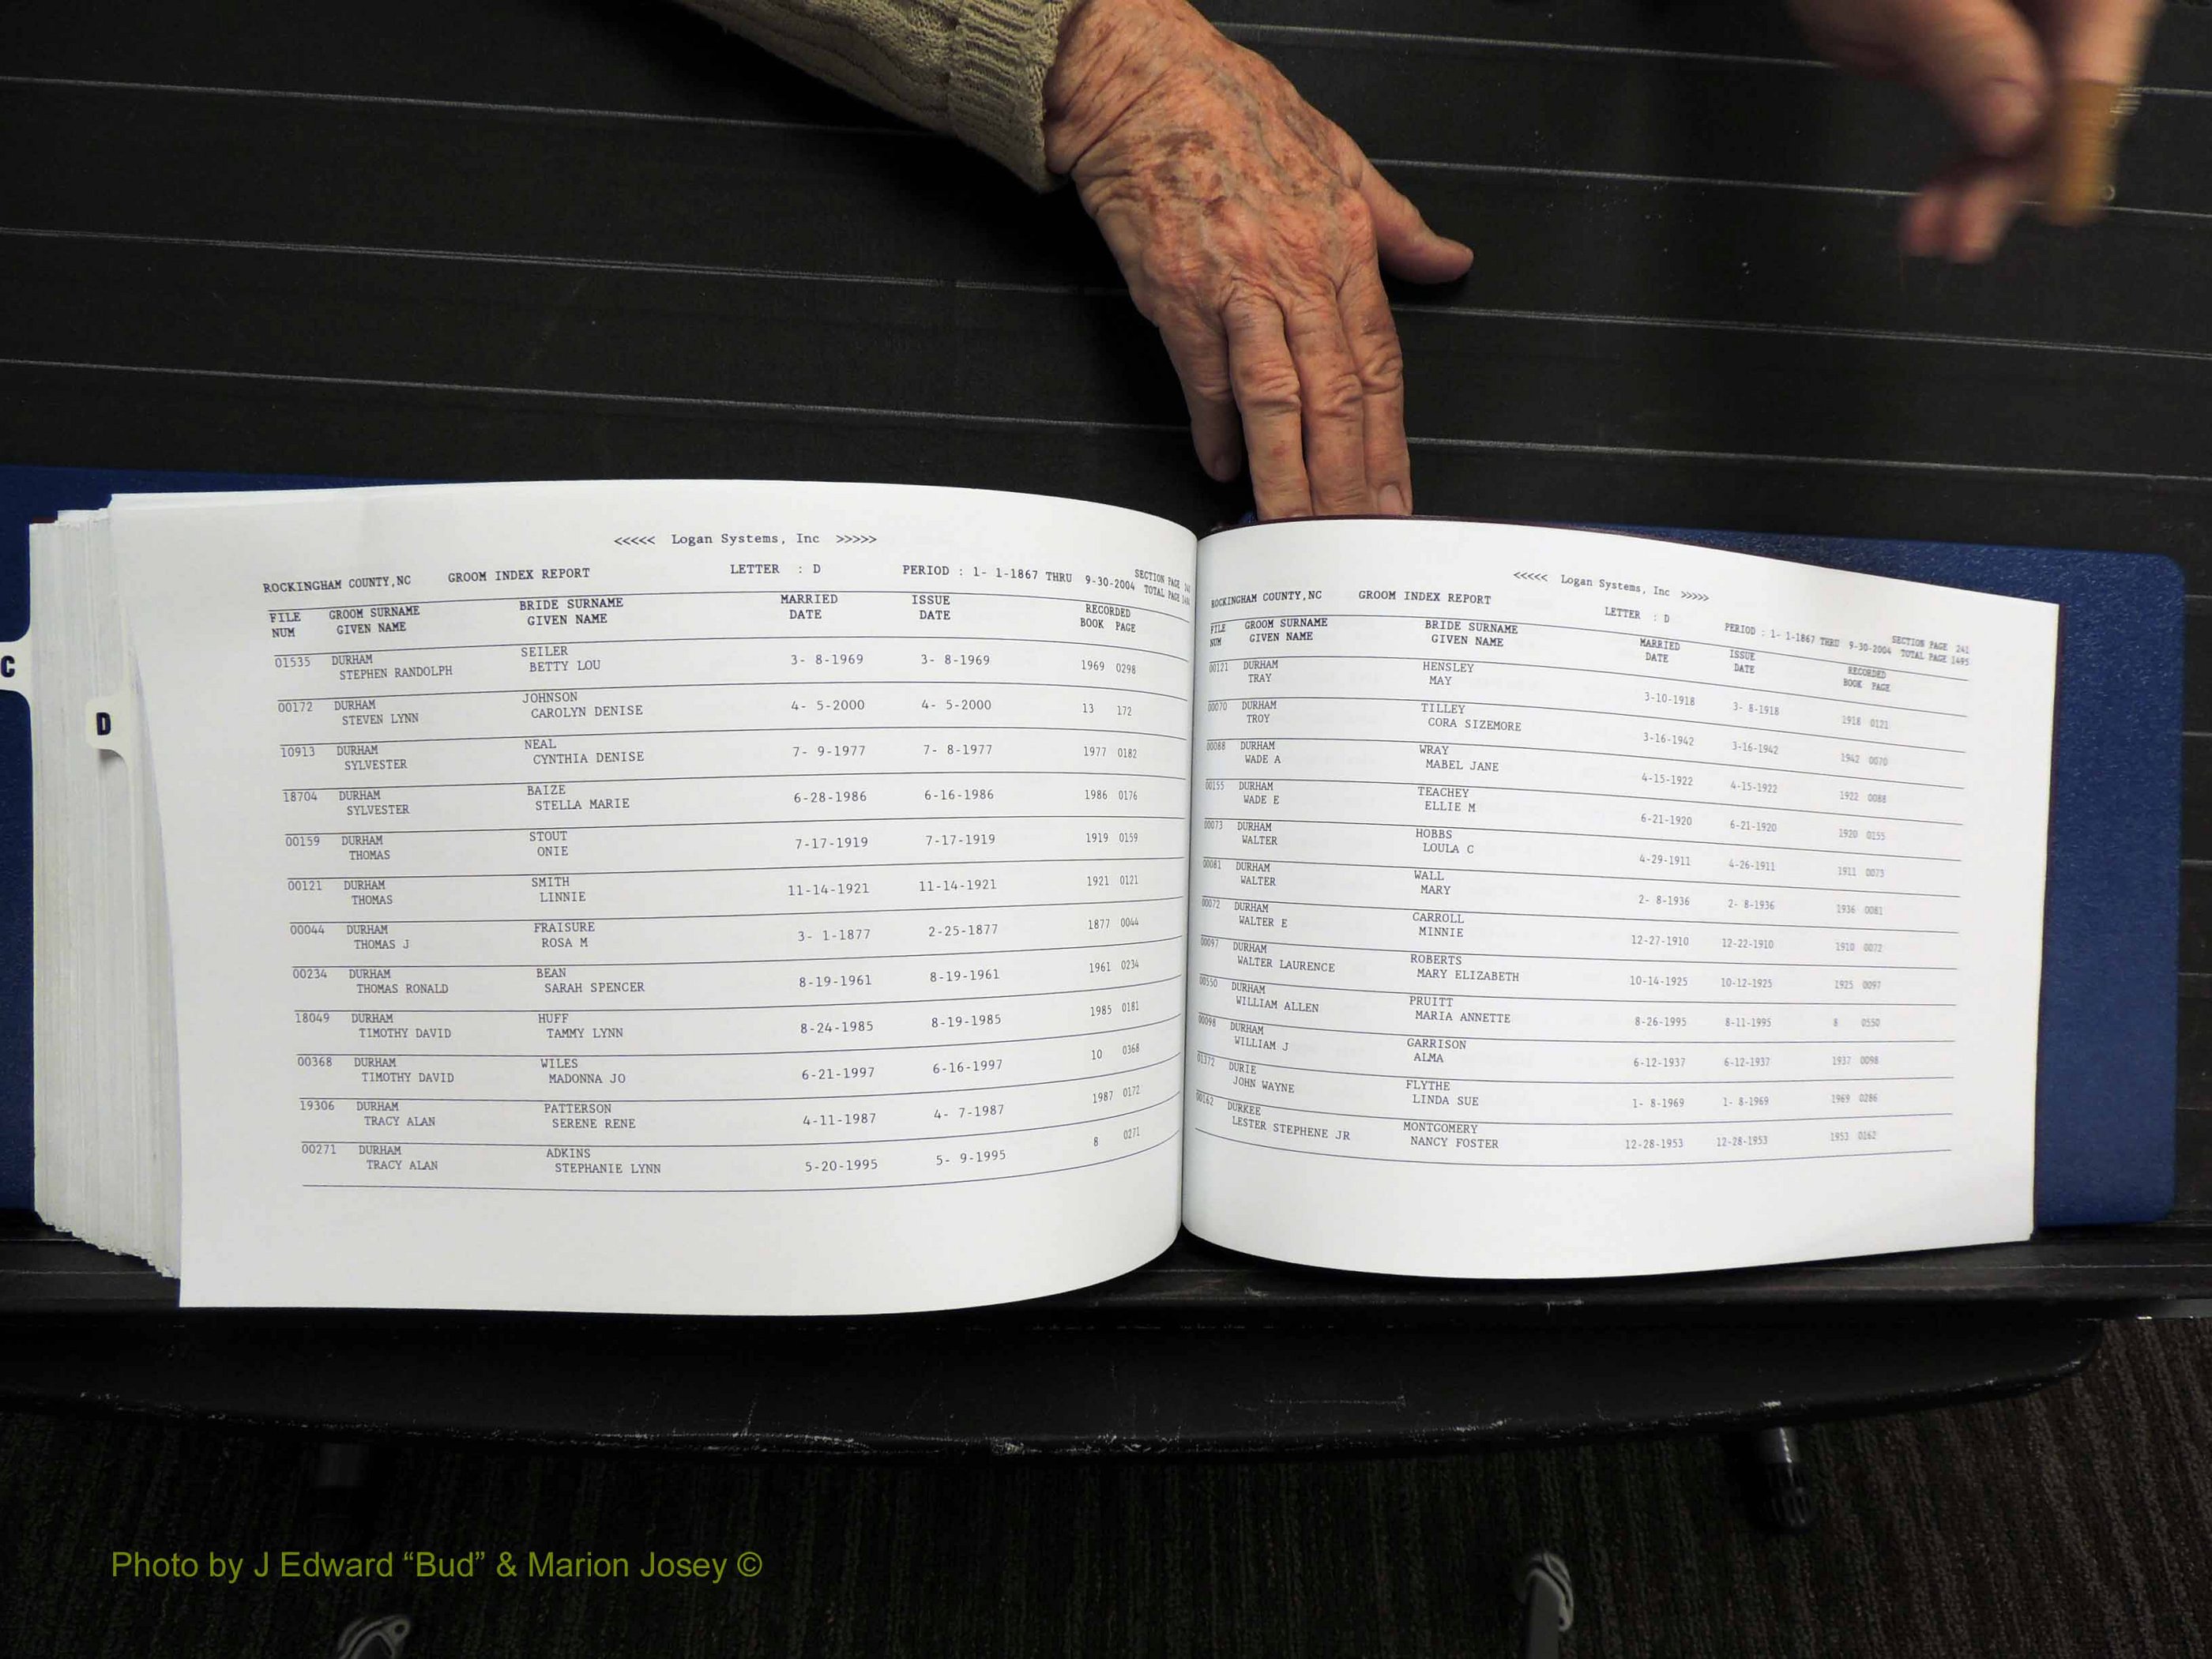 C
D
<<<<< Logan Systems, Inc >>>>>
ROCKINGHAM COUNTY,NC GROOM INDEX REPORT LETTER : D PERIOD : 1- 1-1867 THRU 9-30-2004 SECTION PAGE
TOTAL PAGE
FILE GROOM SURNAME BRIDE SURNAME MARRIED ISSUE RECORDED
NUM GIVEN NAME GIVEN NAME DATE DATE BOOK PAGE
01535 DURHAM SEILER 3- 8-1969 3- 8-1969 1969 0298
STEPHEN RANDOLPH BETTY LOU
00172 DURHAM JOHNSON 4- 5-2000 4- 5-2000 13 172
STEVEN LYNN CAROLYN DENISE
10913 DURHAM NEAL 7- 9-1977 7- 8-1977 1977 0182
SYLVESTER CYNTHIA DENISE
18704 DURHAM BAIZE 6-28-1986 6-16-1986 1986 0176
SYLVESTER STELLA MARIE
00159 DURHAM STOUT 7-17-1919 7-17-1919 1919 0159
THOMAS ONIE
00121 DURHAM SMITH 11-14-1921 11-14-1921 1921 0121
THOMAS LINNIE
00044 DURHAM FRAISURE 3- 1-1877 2-25-1877 1877 0044
THOMAS J ROSA M
00234 DURHAM BEAN 8-19-1961 8-19-1961 1961 0234
THOMAS RONALD SARAH SPENCER
18049 DURHAM HUFF 8-24-1985 8-19-1985 1985 0181
TIMOTHY DAVID TAMMY LYNN
00368 DURHAM WILES 6-21-1997 6-16-1997 10 0368
TIMOTHY DAVID MADONNA JO
19306 DURHAM PATTERSON 4-11-1987 4- 7-1987 1987 0172
TRACY ALAN SERENE RENE
00271 DURHAM ADKINS 5-20-1995 5- 9-1995 8 0271
TRACY ALAN STEPHANIE LYNN
<<<<< Logan Systems, Inc >>>>>
ROCKINGHAM COUNTY,NC GROOM INDEX REPORT LETTER : D PERIOD : 1- 1-1867 THRU 9-30-2004 SECTION PAGE 241
TOTAL PAGE 1495
FILE GROOM SURNAME BRIDE SURNAME MARRIED ISSUE RECORDED
NUM GIVEN NAME GIVEN NAME DATE DATE BOOK PAGE
00121 DURHAM HENSLEY 3-10-1918 3- 8-1918 1918 0121
TRAY MAY
00070 DURHAM TILLEY 3-16-1942 3-16-1942 1942 0070
TROY CORA SIZEMORE
00088 DURHAM WRAY 4-15-1922 4-15-1922 1922 0088
WADE A MABEL JANE
00155 DURHAM TEACHEY 6-21-1920 6-21-1920 1920 0155
WADE E ELLIE M
00073 DURHAM HOBBS 4-29-1911 4-26-1911 1911 0073
WALTER LOULA C
00081 DURHAM WALL 2- 8-1936 2- 8-1936 1936 0081
WALTER MARY
00072 DURHAM CARROLL 12-27-1910 12-22-1910 1910 0072
WALTER E MINNIE
00097 DURHAM ROBERTS 10-14-1925 10-12-1925 1925 0097
WALTER LAURENCE MARY ELIZABETH
00550 DURHAM PRUITT 8-26-1995 8-11-1995 8 0550
WILLIAM ALLEN MARIA ANNETTE
00098 DURHAM GARRISON 6-12-1937 6-12-1937 1937 0098
WILLIAM J ALMA
01372 DURIE FLYTHE 1- 8-1969 1- 8-1969 1969 0286
JOHN WAYNE LINDA SUE
00162 DURKEE MONTGOMERY 12-28-1953 12-28-1953 1953 0162
LESTER STEPHENE JR NANCY FOSTER
Photo by J Edward “Bud” & Marion Josey ©